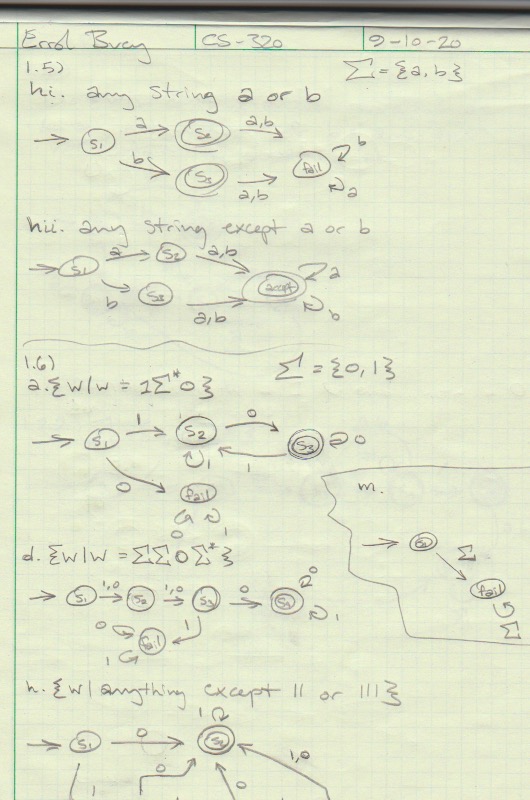 Errol Bvey CS-320 9-10-20
1.5) Σ = {a, b}
hi. any string a or b
S1 a S2 a,b
b S3 a,b fail b a
hii. any string except a or b
S1 a S2 a,b
b S3 a,b accept a b
1.6) Σ = {0, 1}
a. {w | w = 1Σ*0}
S1 1 S2 0 S3 0
1 1
0 fail 0 1
m.
S1 Σ fail Σ
d. {w | w = ΣΣ0Σ*}
S1 1,0 S2 1,0 S3 0 S4 0 1
0 1 fail 1
h. {w | anything except 11 or 111}
S1 0 1
1 0 0 1,0